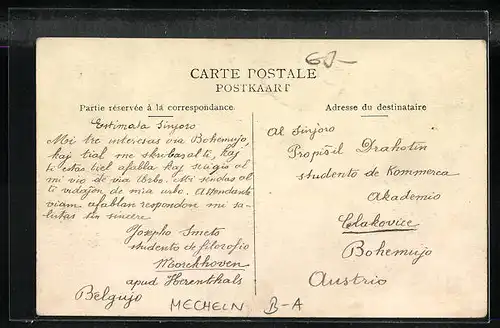 60.-
CARTE POSTALE
POSTKAART
Partie réservée à la correspondance
Adresse du destinataire
Estimata Sinjoro
Mi tre interesas via Bohemujo,
kaj tial me skribas al ti, kaj
ti estos tiel afabla kaj sciigis al
mi vio de via Urbo. Mi sendas al
ti vidajon de mia urbo. Attendante
viam afablan respondon mi sa-
lutas sin sincere
Josepho Smets
studento de filozofio
Morckhoven
apud Herenthals
Belgujo
MECHELN
B-A
Al Sinjoro
Propišil Drahotin
studento de Kommerca
Akademio
Čelakovice
Bohemujo
Austrio